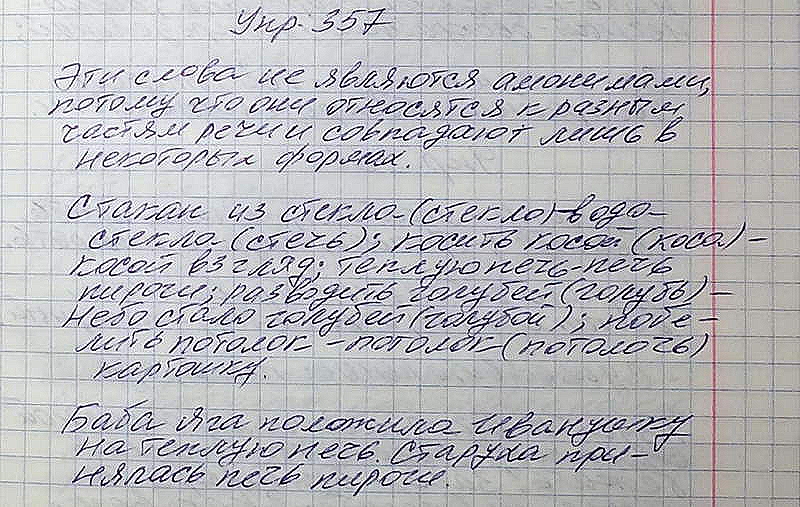 Упр. 357
Эти слова не являются амонимами,
потому что они относятся к разным
частям речи и совпадают лишь в
некоторых формах.
Стакан из стекла (стекло) - вода
стекла (стечь); косить косой (коса) -
косой взгляд; теплую печь - печь
пироги; разводить голубей (голубь) -
небо стало голубей (голубой); побе-
лить потолок - потолок (потолочь)
картошку.
Баба яга положила Иванушку
на теплую печь. Старуха при-
нялась печь пироги.